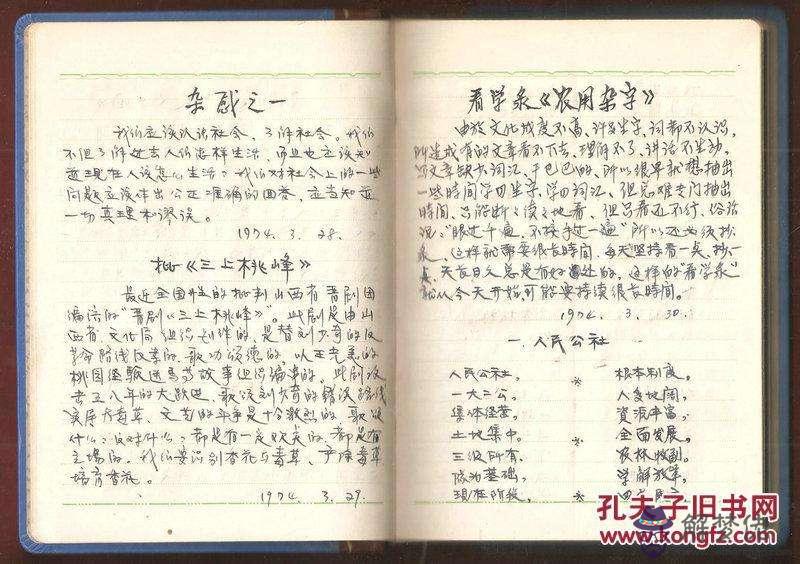 杂感之一
我们应该认识社会，了解社会。我们
不但了解过去人们怎样生活，而且也应该知
道现在人该怎么生活？我们对社会上的一些
问题应该作出公正准确的回答，应当知道
一切真理和谬误。
1974.3.28.
批《三上桃峰》
最近全国开始的批判山西省晋剧团
编演的“晋剧《三上桃峰》”。此剧是由山
西省文化局组织创作的，是替刘少奇的反
革命路线反革的、歌功颂德的，以王光美的
桃园经验送马等故事组织编串的，此剧攻
击五八年的大跃进，歌颂刘少奇的错误路线
实属大毒草，文艺的斗争是十分激烈的，歌颂
什么？反对什么？都是有一定政美的，都是有
立场的，我们要识别香花与毒草，产除毒草
培育香花。
1974.3.29.
看学录《农用杂字》
由于文化成度不高，许多生字、词都不认识，
所造成有的文章看不下去，理解不了，讲话不生动，
写文章缺少词汇，干巴巴的，所以很早就想抽出
一些时间学习生字，学习词汇，但总难专门抽出
时间，只能断断续续地看，但只看还不行，俗话
说：“眼过千遍，不楼手过一遍”所以还必须抄
录，这样就需要很长时间，每天坚持看一点，抄一
点，天长日久总是有好处的，这样的“看学录”
就从今天开始可能要持续很长时间。
1974.3.30.
一.人民公社
人民公社， * 根本制度。
一大二公， 人多地阔，
集体经营。 资源丰富，
土地集中。 * 全面发展。
三级所有， 农林牧副。
队为基础， 学解放军，
现在阶段， *
孔夫子旧书网
www.kongfz.com
解梦佬